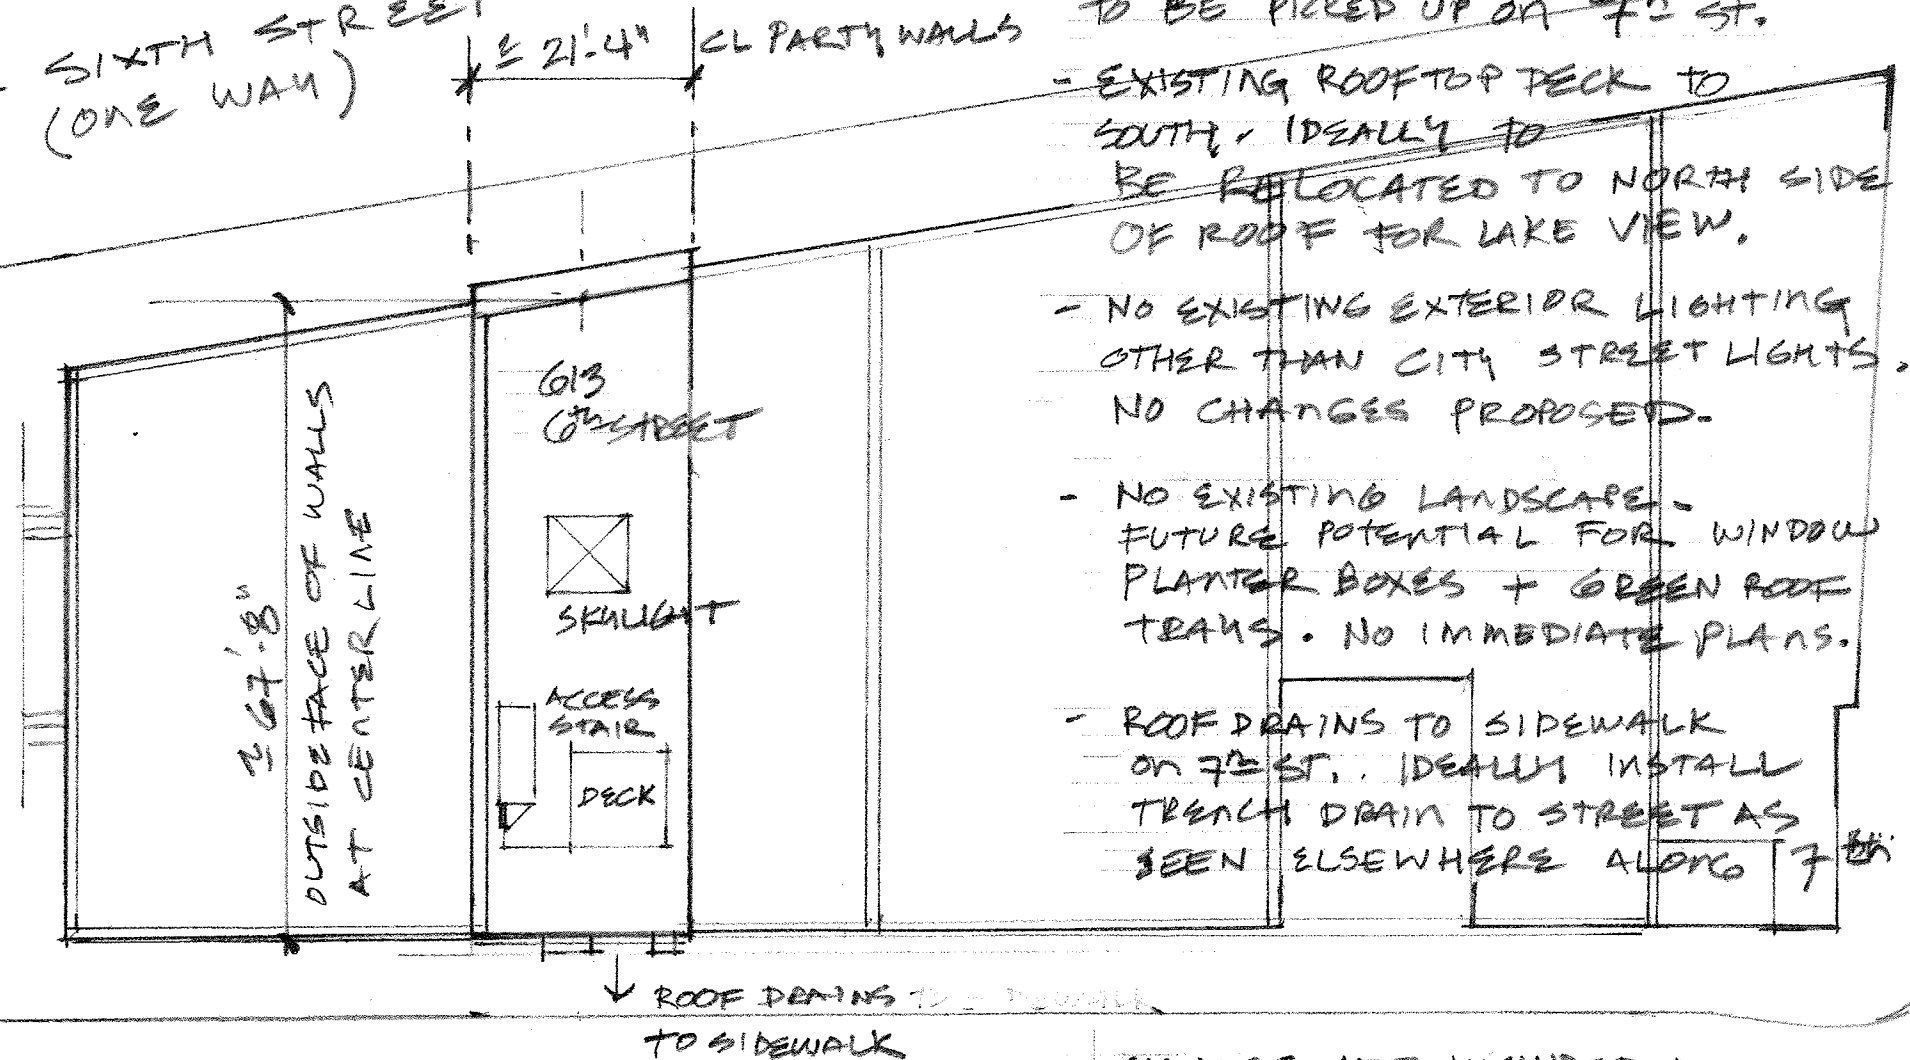 SIXTH STREET
(ONE WAY)
± 21'-4"
CL PARTY WALLS
TO BE PICKED UP ON 7TH ST.
- EXISTING ROOFTOP DECK TO
SOUTH. IDEALLY TO
BE RELOCATED TO NORTH SIDE
OF ROOF FOR LAKE VIEW.
- NO EXISTING EXTERIOR LIGHTING
OTHER THAN CITY STREET LIGHTS.
NO CHANGES PROPOSED.
- NO EXISTING LANDSCAPE.
FUTURE POTENTIAL FOR WINDOW
PLANTER BOXES + GREEN ROOF
TRAYS. NO IMMEDIATE PLANS.
- ROOF DRAINS TO SIDEWALK
ON 7TH ST.. IDEALLY INSTALL
TRENCH DRAIN TO STREET AS
SEEN ELSEWHERE ALONG 7TH
± 67'-8"
OUTSIDE FACE OF WALLS
AT CENTERLINE
613
6TH STREET
SKYLIGHT
ACCESS
STAIR
DECK
ROOF DRAINS
TO SIDEWALK